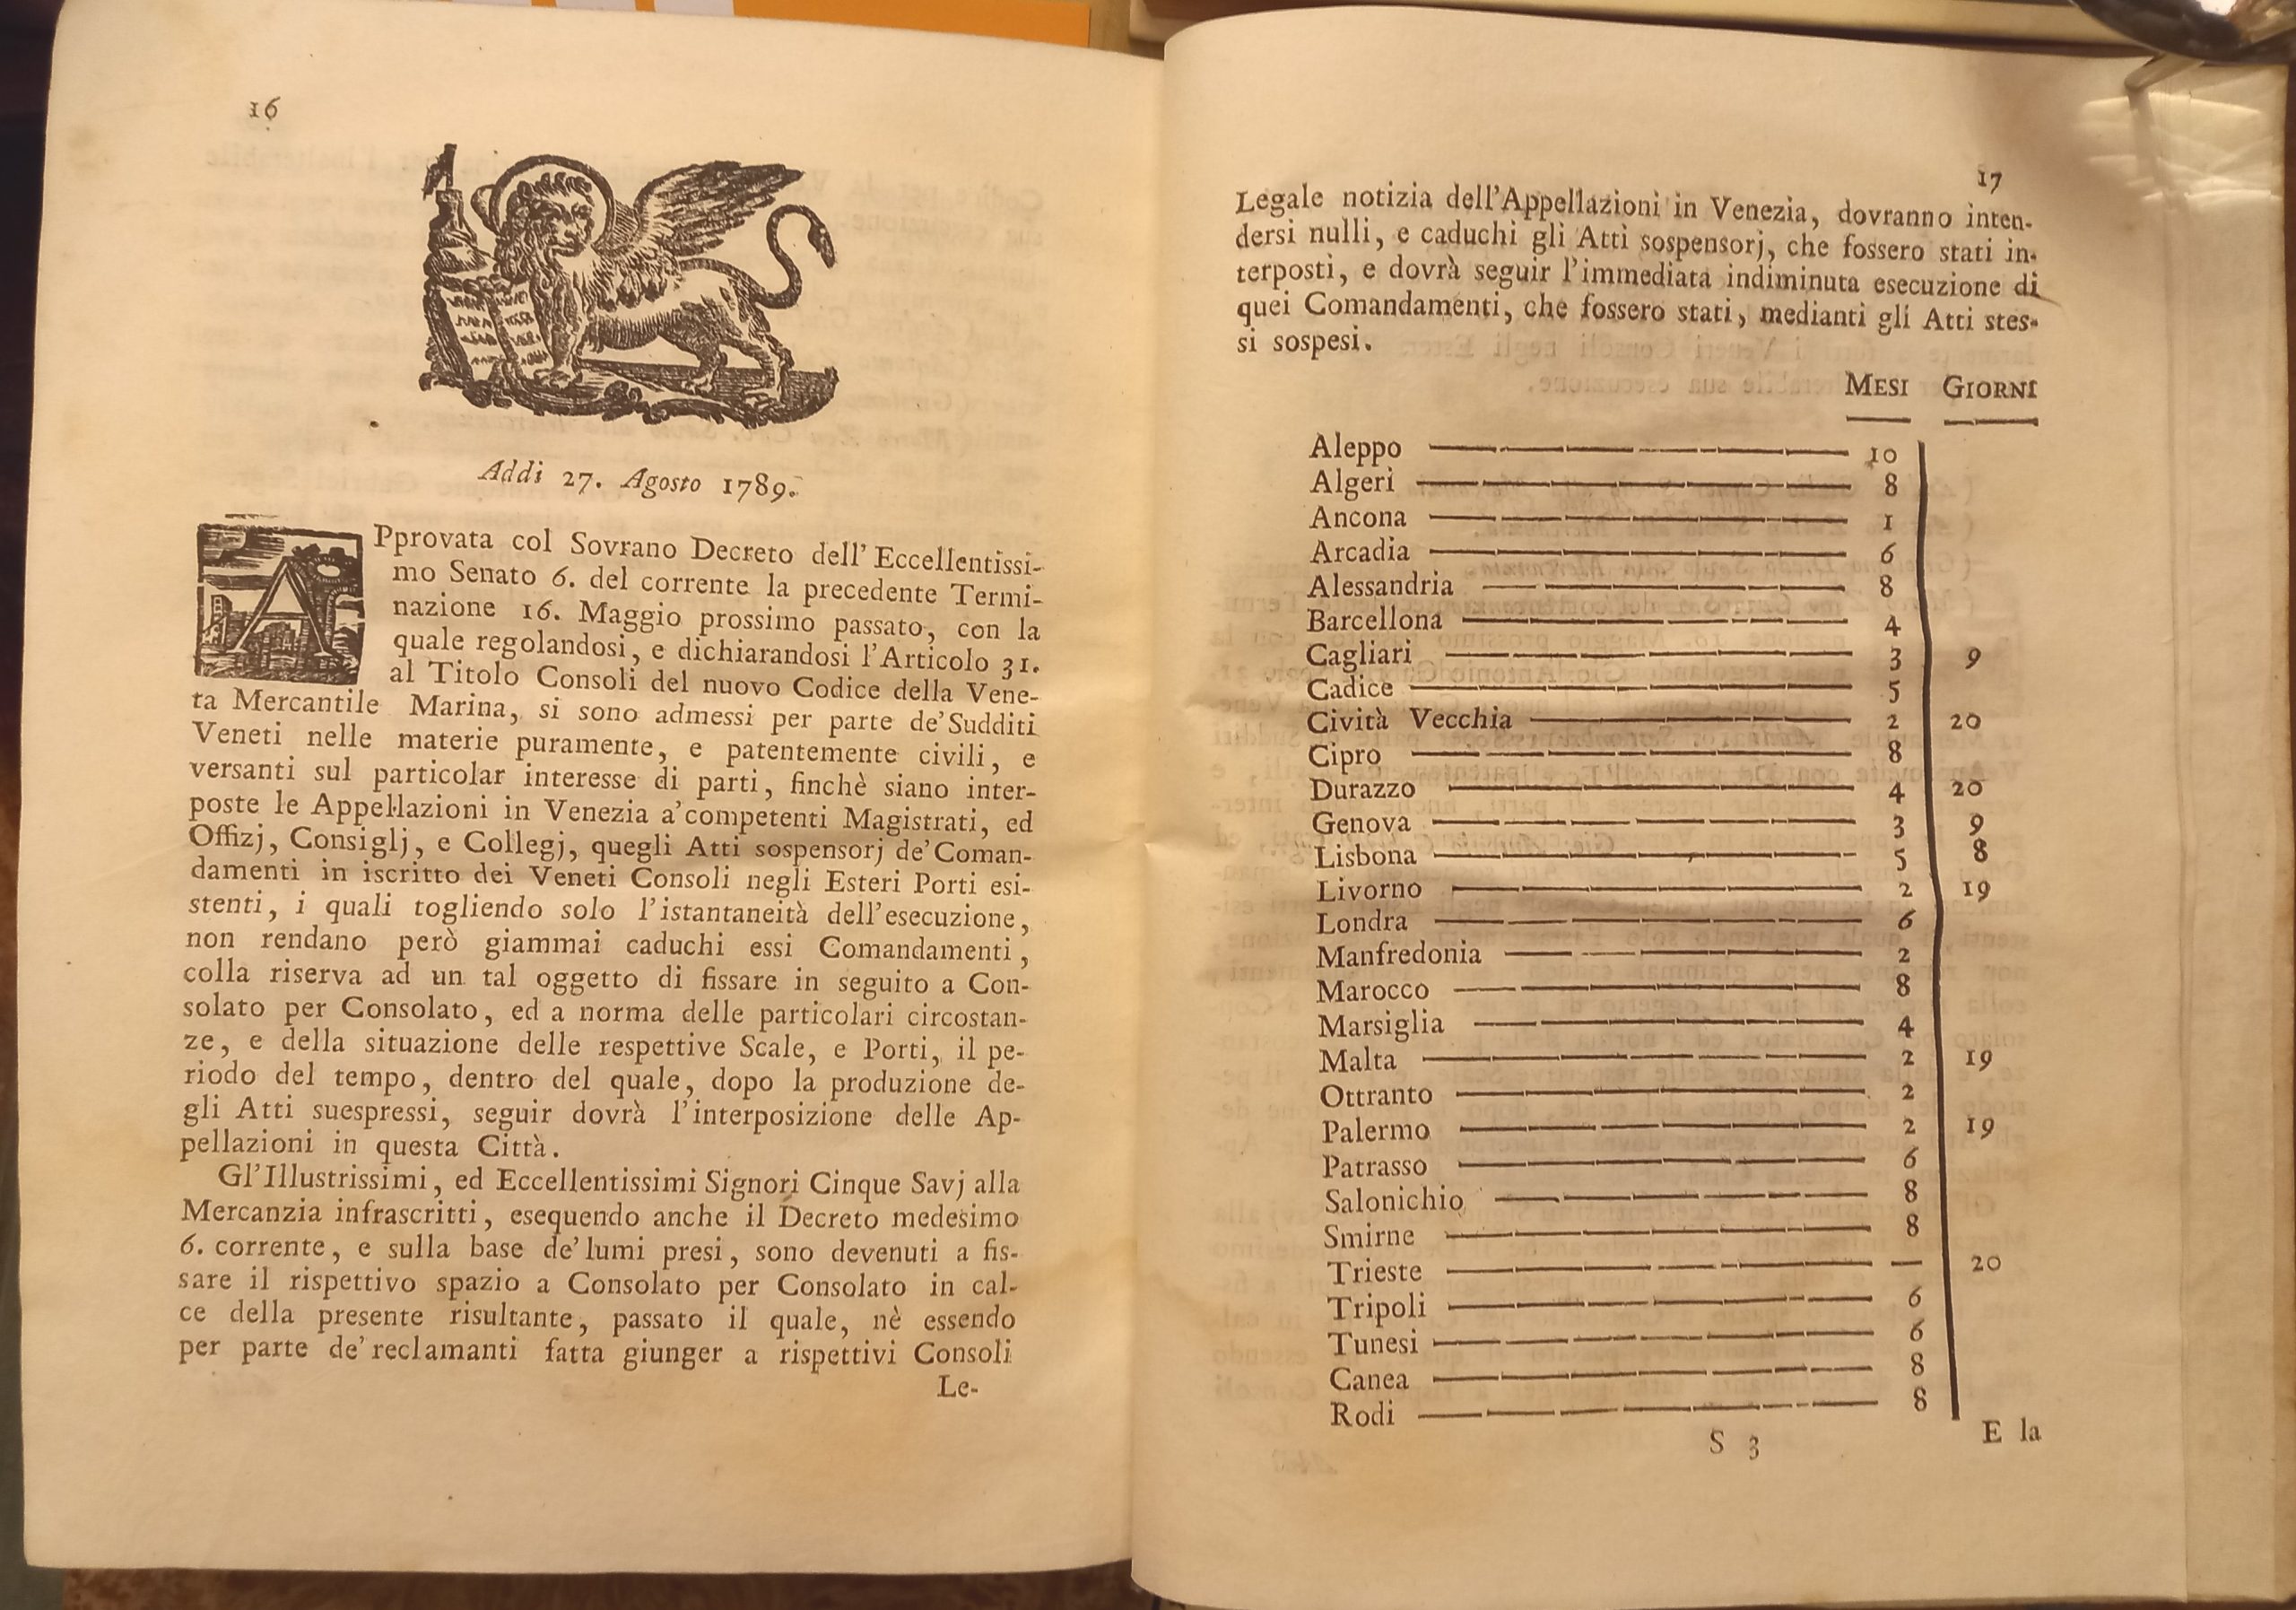 16
Addì 27. Agosto 1789.
APprovata col Sovrano Decreto dell'Eccellentissi-
mo Senato 6. del corrente la precedente Termi-
nazione 16. Maggio prossimo passato, con la
quale regolandosi, e dichiarandosi l'Articolo 31.
al Titolo Consoli del nuovo Codice della Vene-
ta Mercantile Marina, si sono admessi per parte de'Sudditi
Veneti nelle materie puramente, e patentemente civili, e
versanti sul particolar interesse di parti, finchè siano inter-
poste le Appellazioni in Venezia a'competenti Magistrati, ed
Offizj, Consiglj, e Collegj, quegli Atti sospensorj de'Coman-
damenti in iscritto dei Veneti Consoli negli Esteri Porti esi-
stenti, i quali togliendo solo l'istantaneità dell'esecuzione,
non rendano però giammai caduchi essi Comandamenti,
colla riserva ad un tal oggetto di fissare in seguito a Con-
solato per Consolato, ed a norma delle particolari circostan-
ze, e della situazione delle respettive Scale, e Porti, il pe-
riodo del tempo, dentro del quale, dopo la produzione de-
gli Atti suespressi, seguir dovrà l'interposizione delle Ap-
pellazioni in questa Città.
Gl'Illustrissimi, ed Eccellentissimi Signori Cinque Savj alla
Mercanzia infrascritti, esequendo anche il Decreto medesimo
6. corrente, e sulla base de'lumi presi, sono devenuti a fis-
sare il rispettivo spazio a Consolato per Consolato in cal-
ce della presente risultante, passato il quale, nè essendo
per parte de'reclamanti fatta giunger a rispettivi Consoli
Le-
17
Legale notizia dell'Appellazioni in Venezia, dovranno inten-
dersi nulli, e caduchi gli Atti sospensorj, che fossero stati in-
terposti, e dovrà seguir l'immediata indiminuta esecuzione di
quei Comandamenti, che fossero stati, medianti gli Atti stes-
si sospesi.
MESI GIORNI
Aleppo 10
Algeri 8
Ancona 1
Arcadia 6
Alessandria 8
Barcellona 4
Cagliari 3 9
Cadice 5
Cività Vecchia 2 20
Cipro 8
Durazzo 4 20
Genova 3 9
Lisbona 5 8
Livorno 2 19
Londra 6
Manfredonia 2
Marocco 8
Marsiglia 4
Malta 2 19
Ottranto 2
Palermo 2 19
Patrasso 6
Salonichio 8
Smirne 8
Trieste — 20
Tripoli 6
Tunesi 6
Canea 8
Rodi 8
S 3 E la